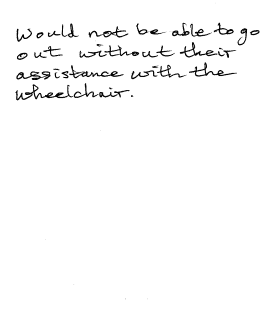 Would not be able to go
out without their
assistance with the
wheelchair.